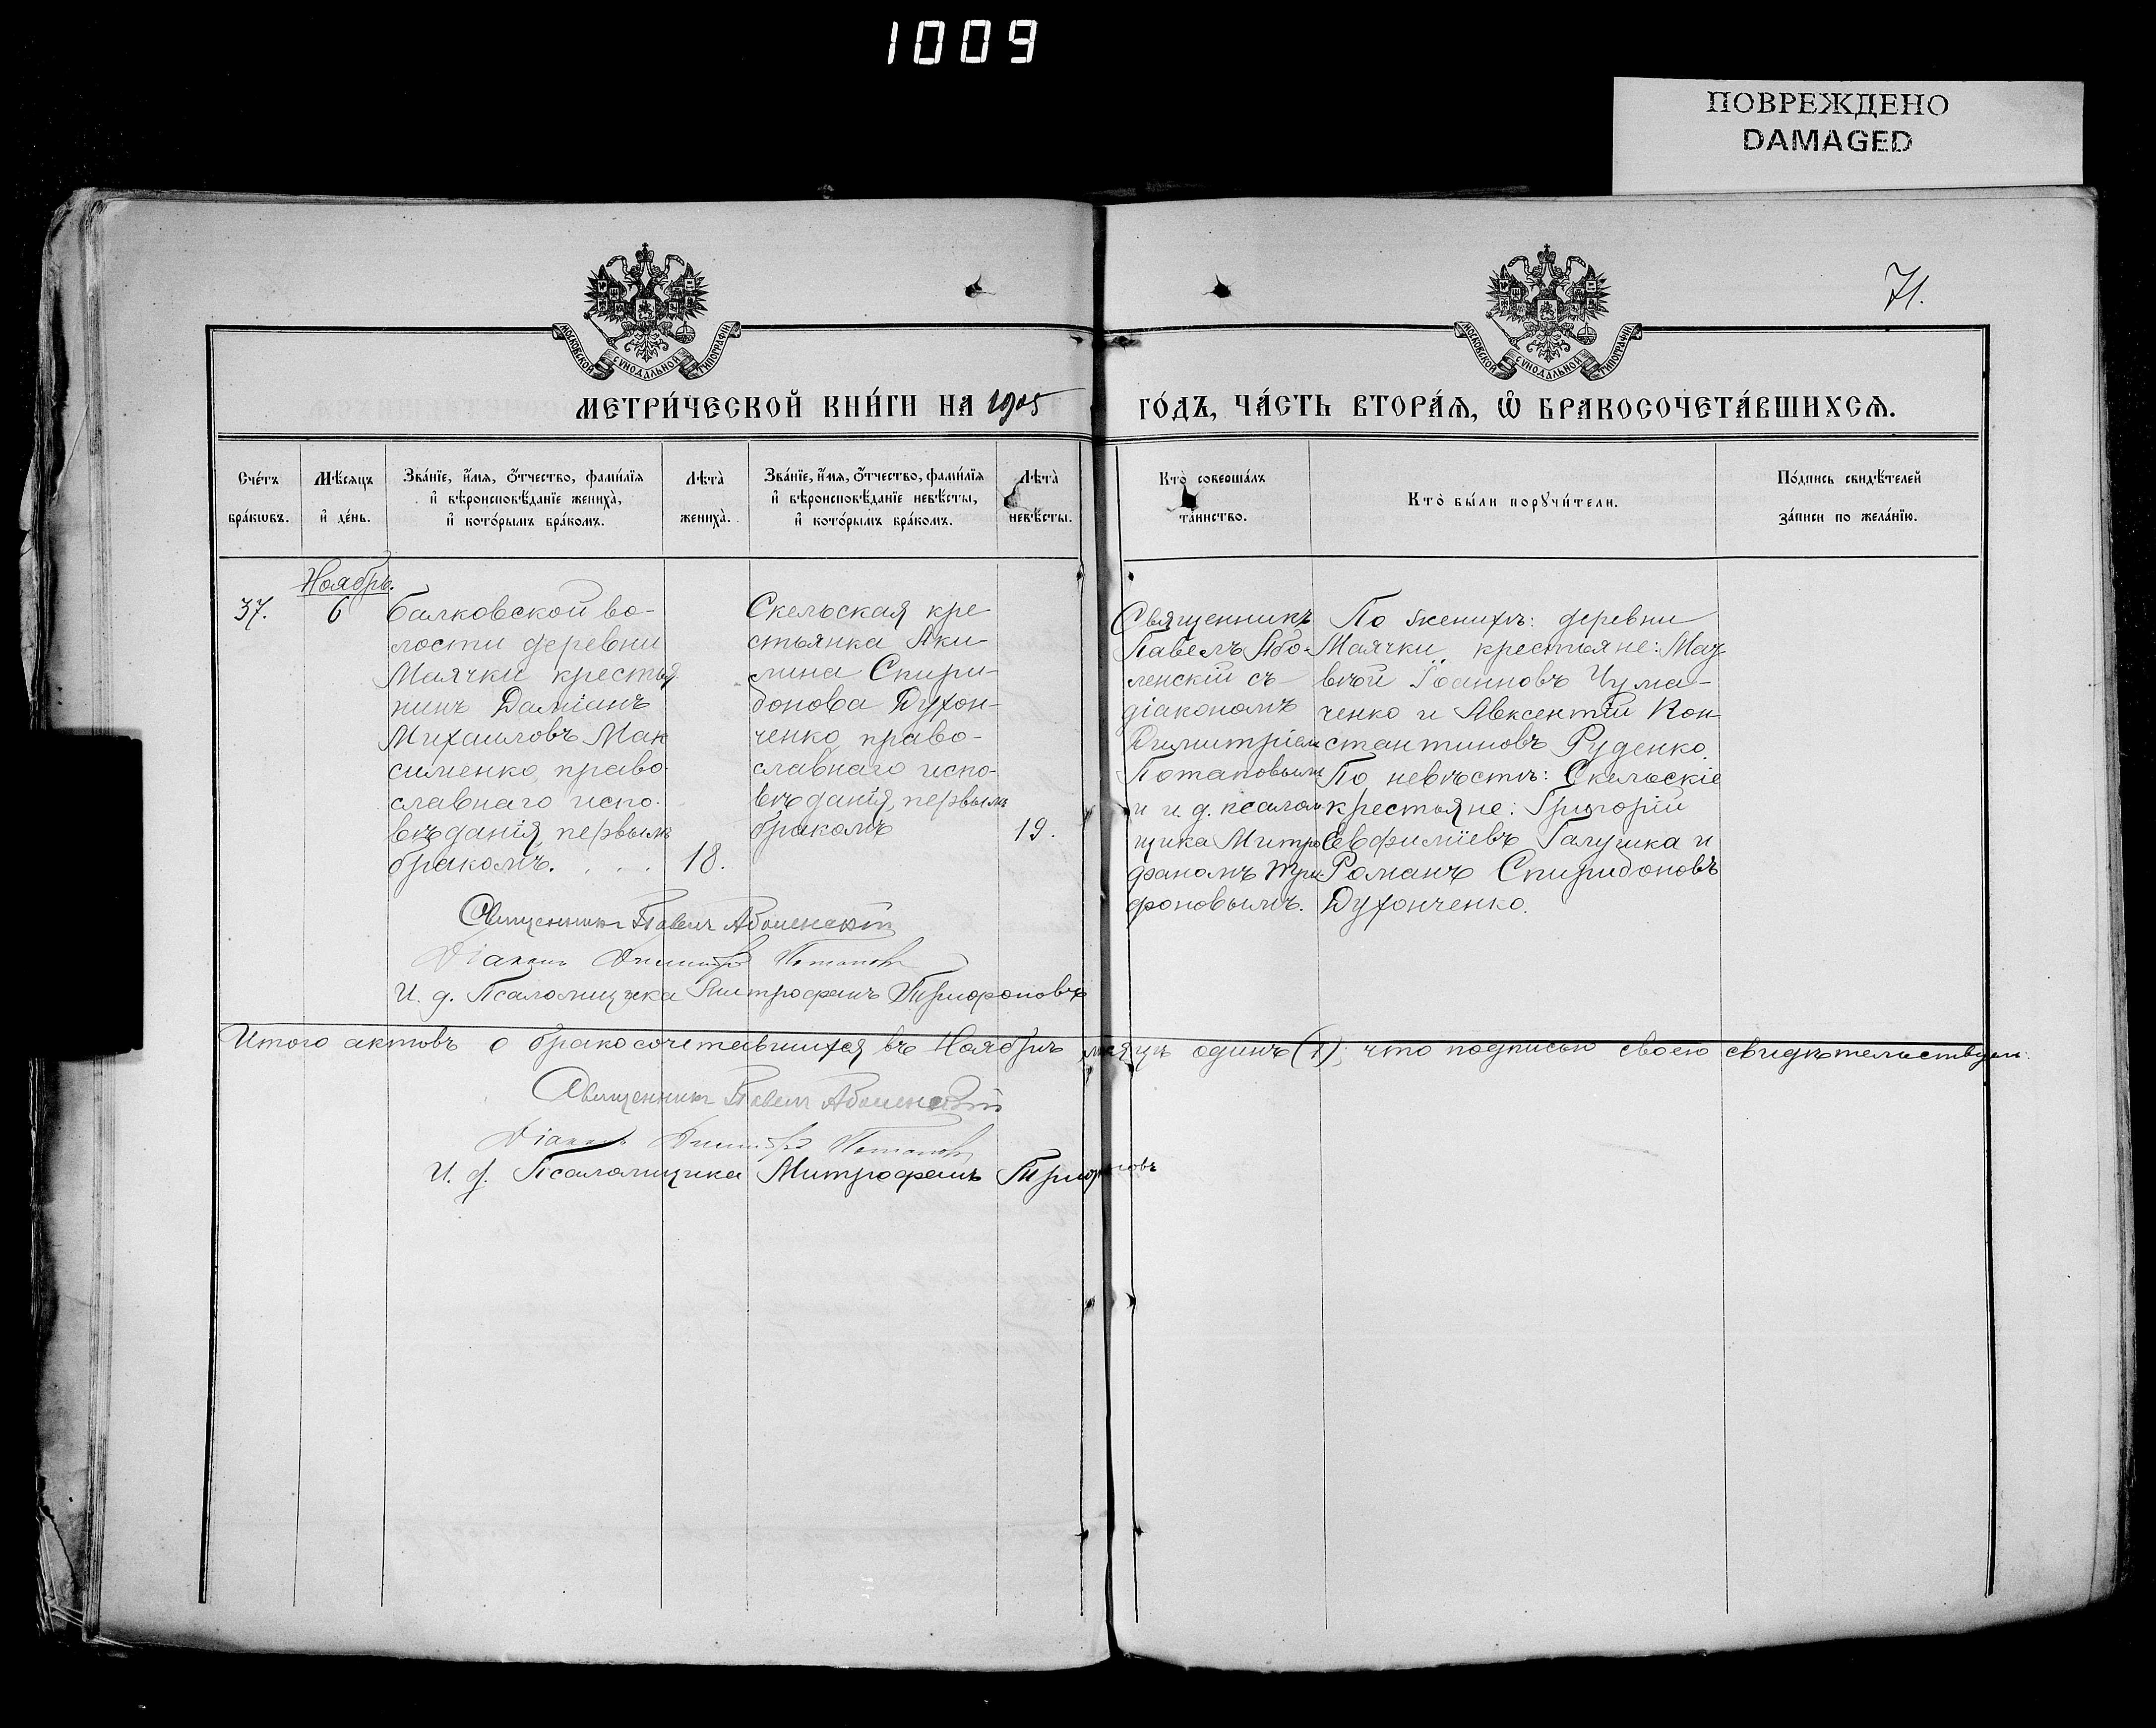 1009
ПОВРЕЖДЕНО
DAMAGED
71.
МОСКОВСКОЙ СѴНОДАЛЬНОЙ ТИПОГРАФІИ
МОСКОВСКОЙ СѴНОДАЛЬНОЙ ТИПОГРАФІИ
МЕТРИ́ЧЕСКОЙ КНИ́ГИ НА 1905
ГО́ДЪ, ЧА́СТЬ ВТОРА́Я, Ѡ҆ БРАКОСОЧЕТА́ВШИХСЯ.
Сче́тъ
бра́кѡвъ.
Мѣ́сяцъ
и҆ де́нь.
Зва́нїе, и҆́мя, ѻ҆́тчество, фами́лїя
и҆ вѣроисповѣ́данїе жениха̀,
и҆ кото́рымъ бра́комъ.
Лѣта̀
жениха̀.
Зва́нїе, и҆́мя, ѻ҆́тчество, фами́лїя
и҆ вѣроисповѣ́данїе невѣ́сты,
и҆ кото́рымъ бра́комъ.
Лѣта̀
невѣ́сты.
Кто̀ соверша́лъ
таинство.
Кто̀ бы́ли порꙋчи́тели.
По́дпись свидѣ́телей
за́писи по жела́нїю.
Ноябрь.
37.
6
Балковской во-
лости деревни
Маячки крестья
нинъ Даміанъ
Михаиловъ Мак
сименко, право-
славнаго испо-
вѣданія, первымъ
бракомъ. . . .
18.
Скельская кре
стьянка Аки-
лина Спири-
донова Духон-
ченко право-
славнаго испо-
вѣданія, первымъ
бракомъ
19.
Священникъ
Павелъ Або-
ленскій съ
діакономъ
Димитріемъ
Потаповымъ
и и. д. псалом
щика Митро
фаномъ Три
фоновымъ.
По женихѣ: деревни
Маячки крестьяне: Мат
вѣй Іоанновъ Чума-
ченко и Авксентій Кон
стантиновъ Руденко.
По невѣстѣ: Скельскіе
крестьяне: Григорій
Евфиміевъ Галушка и
Романъ Спиридоновъ
Духонченко.
Священникъ Павелъ Аболенскій
Діаконъ Димитрій Потаповъ
И. д. Псаломщика Митрофанъ Трифоновъ
Итого актовъ о бракосочетавшихся въ Ноябрѣ мѣсяцѣ одинъ (1); что подписью своею свидѣтельствуемъ:
Священникъ Павелъ Аболенскій
Діаконъ Димитрій Потаповъ
И. д. Псаломщика Митрофанъ Трифоновъ